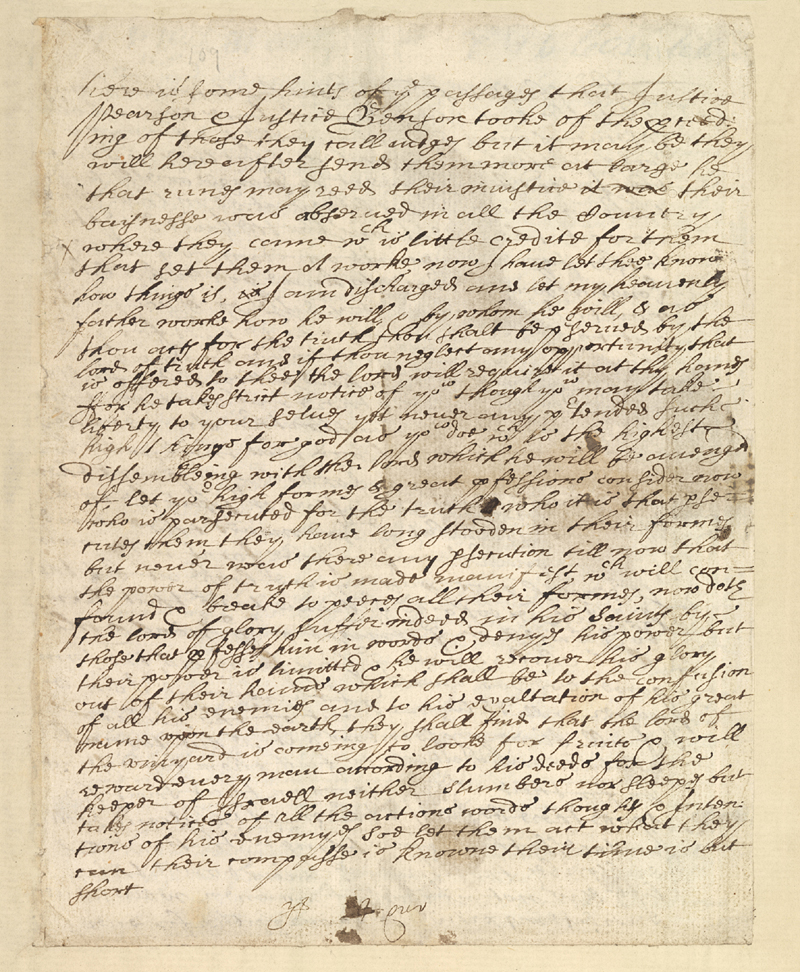 109
here is some hints of yᵉ passages that Justice
Pearson & Justice Benson tooke of the pceed=
ing of those they call iudges but it may be they
will hereafter send them more at large he
that runes may reed their iniustice it was their
baisnesse was observed in all the Country
x where they came wᶜʰ is little credite for them
that set them A worke now I have let thee know
how things is, I am discharged and let my heavenly
father worke how he will, & by whom he will, & as
thou acts for the truth thou shalt be pserved by the
lord of truth and if thou neglect any opportunity that
is offered to thee the lord will require it at thy hands
for he takes strict notice of yoᵘ though yoᵘ may take
liberty to your selves yet never any ptended such
high things for god as yoᵘ doe wᶜʰ is the highest
dissembleing with the lord which he will be avenged
of let yoʳ high formes & great pfessions consider now
who is parsecuted for the truth & who it is that pse=
cutes them they have long stooden in their formes
but never was there any psecution till now that
the power of truth is made manifest wᶜʰ will con=
found & breake to peeces all their formes, now doth
the lord of glory suffer indeed in his Saints by
those that pfesses him in words & denyes his power but
their power is limitted & he will recover his glory
out of their hands which shall be to the confusion
of all his enemies and to his exaltation of his great
name upon the earth, they shall find that the lord of
the vinyard is comeing to looke for fruits & will
reward every man according to his deeds for the
keeper of Israell neither slumbers nor sleepes but
takes notice of all the actions words thoughts & inten=
tions of his enemyes soe let them act what they
can their compasse is knowne their time is but
short